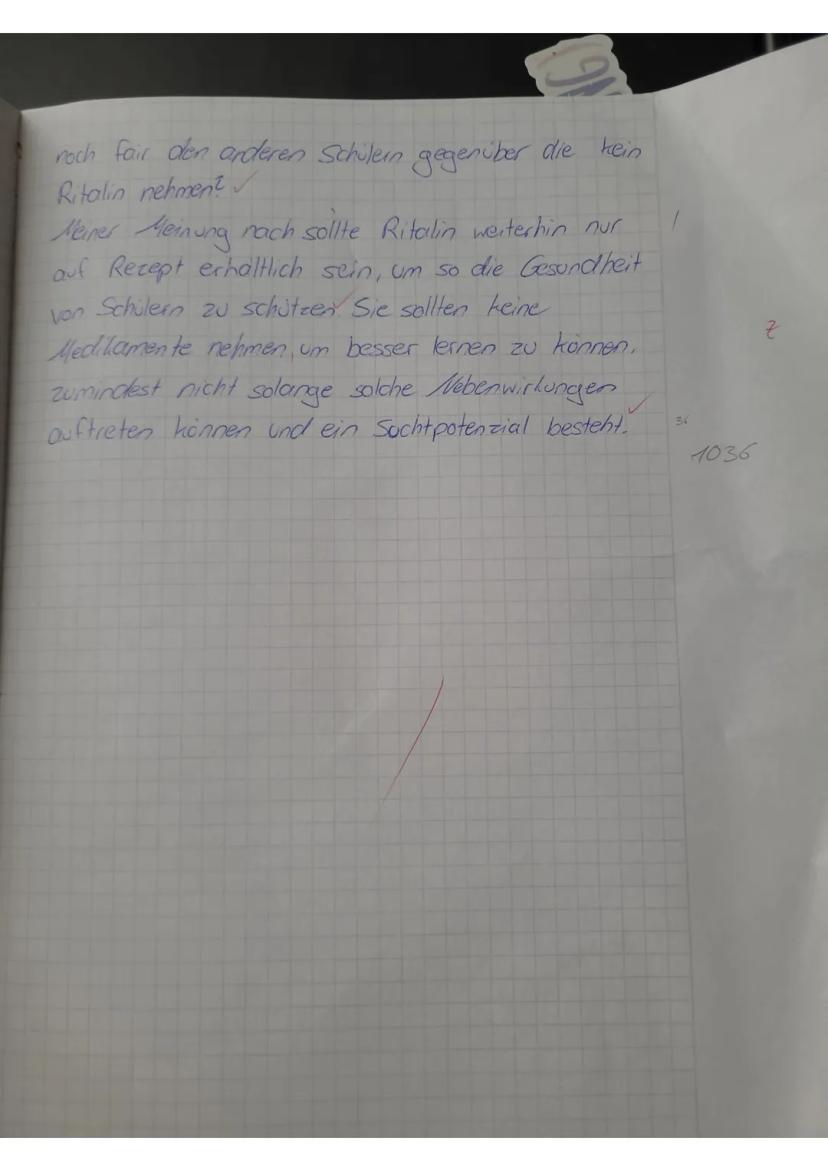 noch fair den anderen Schülern gegenüber die kein
Ritalin nehmen?
Meiner Meinung nach sollte Ritalin weiterhin nur
auf Rezept erhältlich sein, um so die Gesundheit
von Schülern zu schützen. Sie sollten keine
Medikamente nehmen, um besser lernen zu können,
zumindest nicht solange solche Nebenwirkungen
auftreten können und ein Suchtpotenzial besteht.
36
1036
Z